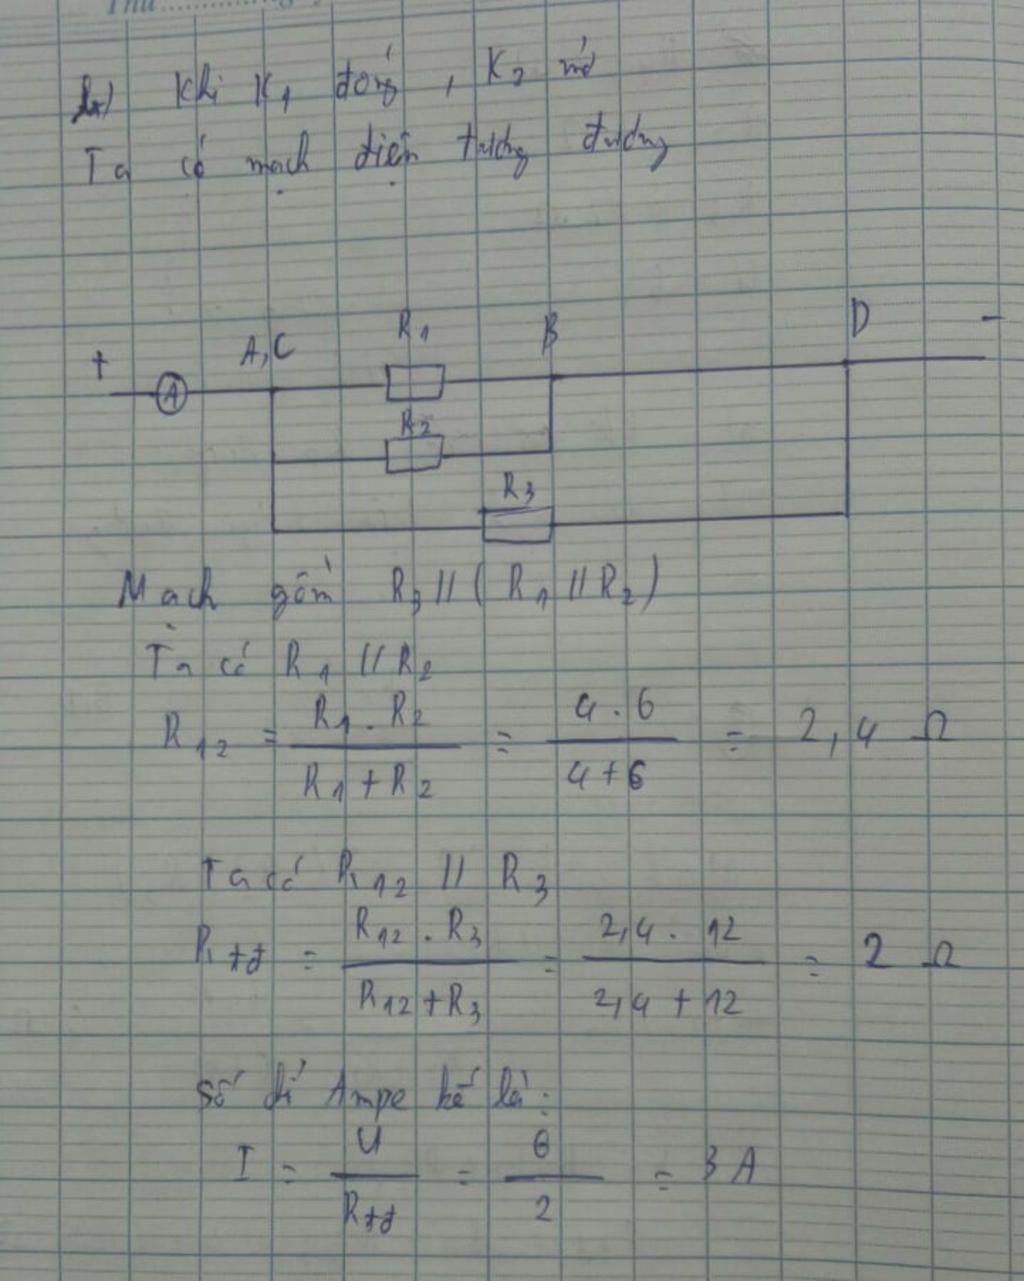 Thứ
b) Khi K₁ đóng, K₂ mở
Ta có mạch điện tương đương
+ A A,C R₁ B D -
R₂
R₃
Mạch gồm R₃ // (R₁ // R₂)
Ta có R₁ // R₂
R₁₂ = R₁ . R₂ / R₁ + R₂ = 4 . 6 / 4 + 6 = 2,4 Ω
Ta có R₁₂ // R₃
R tđ = R₁₂ . R₃ / R₁₂ + R₃ = 2,4 . 12 / 2,4 + 12 = 2 Ω
Số chỉ Ampe kế là :
I = U / R tđ = 6 / 2 = 3 A